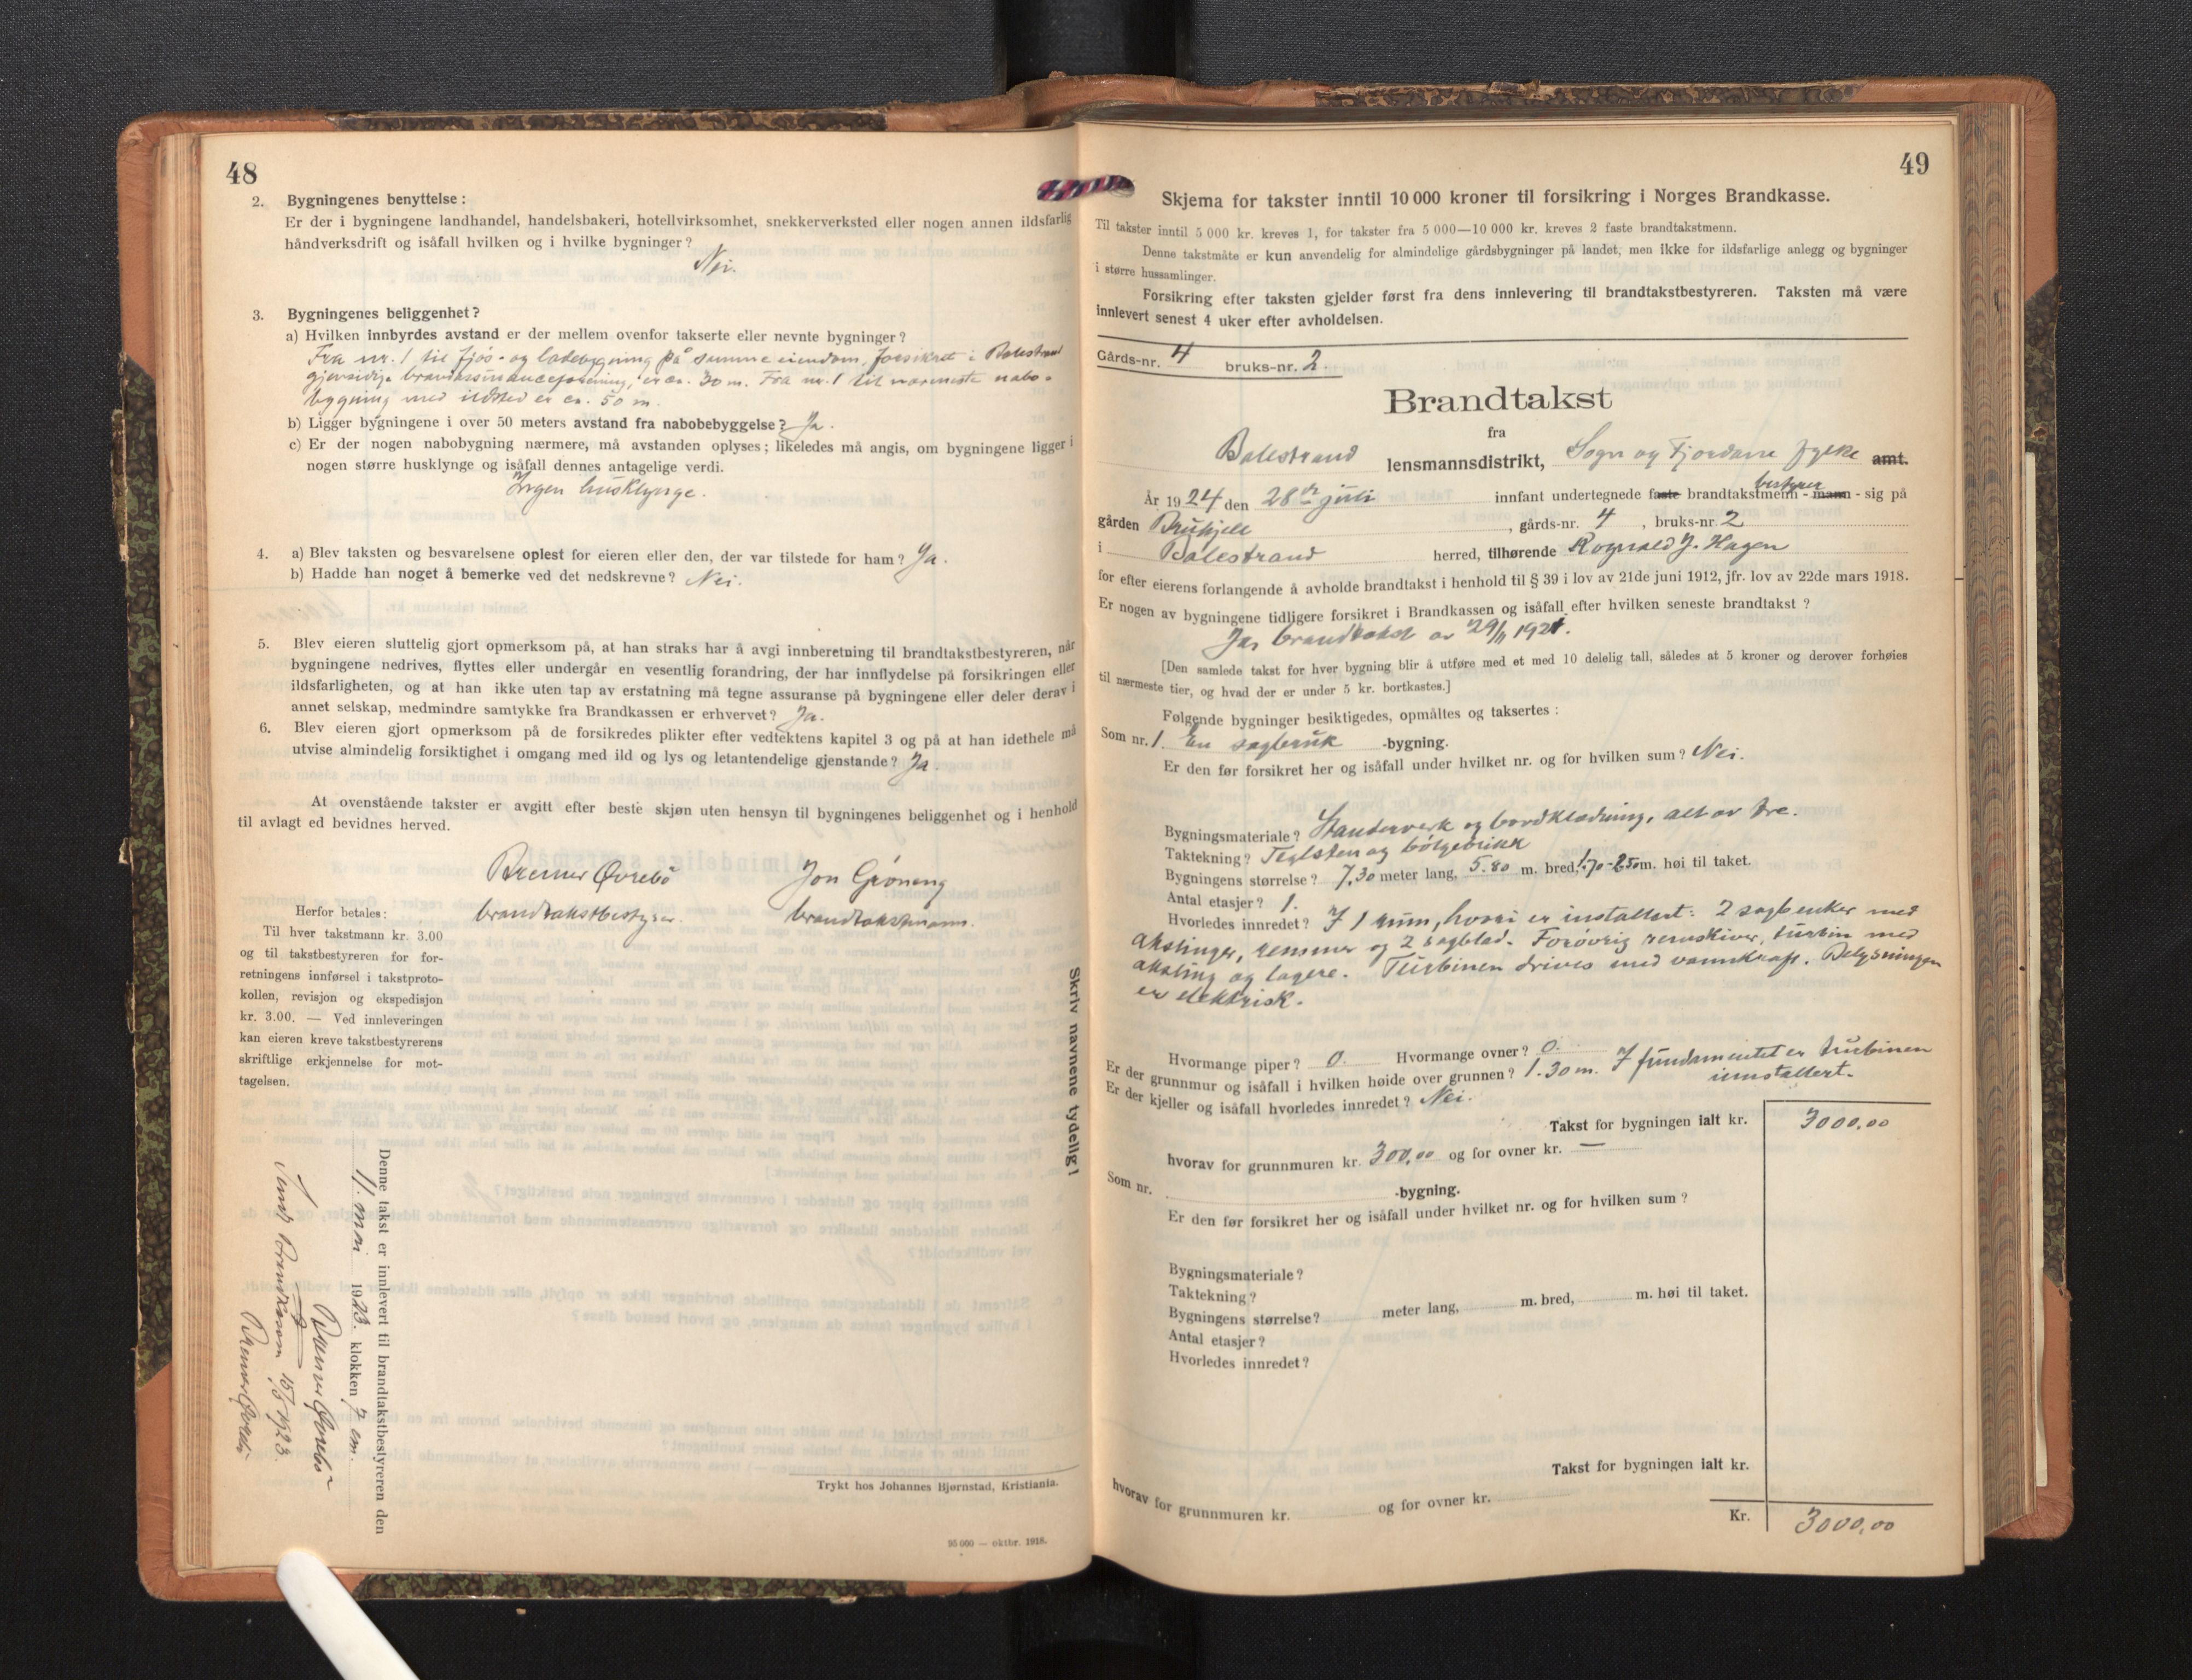 48
2. Bygningenes benyttelse:
Er der i bygningene landhandel, handelsbakeri, hotellvirksomhet, snekkerverksted eller nogen annen ildsfarlig
håndverksdrift og isåfall hvilken og i hvilke bygninger?
Nei.
3. Bygningenes beliggenhet?
a) Hvilken innbyrdes avstand er der mellem ovenfor takserte eller nevnte bygninger?
Fra nr. 1 til fjös- og ladebygning på samme eiendom, forsikret i Balestrand
gjensidige brandassuranceforening, er ca. 30 m. Fra nr. 1 til nærmeste nabo-
bygning med ildsted er ca. 50 m.
b) Ligger bygningene i over 50 meters avstand fra nabobebyggelse? Ja.
c) Er der nogen nabobygning nærmere, må avstanden oplyses; likeledes må angis, om bygningene ligger i
nogen større husklynge og isåfall dennes antagelige verdi.
Ingen husklynge.
4. a) Blev taksten og besvarelsene oplest for eieren eller den, der var tilstede for ham? Ja.
b) Hadde han noget å bemerke ved det nedskrevne? Nei.
5. Blev eieren sluttelig gjort opmerksom på, at han straks har å avgi innberetning til brandtakstbestyreren, når
bygningene nedrives, flyttes eller undergår en vesentlig forandring, der har innflydelse på forsikringen eller
ildsfarligheten, og at han ikke uten tap av erstatning må tegne assuranse på bygningene eller deler derav i
annet selskap, medmindre samtykke fra Brandkassen er erhvervet? Ja.
6. Blev eieren gjort opmerksom på de forsikredes plikter efter vedtektens kapitel 3 og på at han idethele må
utvise almindelig forsiktighet i omgang med ild og lys og letantendelige gjenstande? Ja.
At ovenstående takster er avgitt efter beste skjøn uten hensyn til bygningenes beliggenhet og i henhold
til avlagt ed bevidnes herved.
Bremer Øvrebö Jon Gröneng
brandtakstbestyrer. brandtakstmann.
Herfor betales:
Til hver takstmann kr. 3.00
og til takstbestyreren for for-
retningens innførsel i takstproto-
kollen, revisjon og ekspedisjon
kr. 3.00. — Ved innleveringen
kan eieren kreve takstbestyrerens
skriftlige erkjennelse for mot-
tagelsen.
Skriv navnene tydelig!
Denne takst er innlevert til brandtakstbestyreren den
11. mai 1923. klokken 7 em.
Bremer Øvrebö
Sendt Brandkassen 15/5 1923.
Bremer Øvrebö
Trykt hos Johannes Bjørnstad, Kristiania.
95 000 — oktbr. 1918.
49
Skjema for takster inntil 10 000 kroner til forsikring i Norges Brandkasse.
Til takster inntil 5 000 kr. kreves 1, for takster fra 5 000—10 000 kr. kreves 2 faste brandtakstmenn.
Denne takstmåte er kun anvendelig for almindelige gårdsbygninger på landet, men ikke for ildsfarlige anlegg og bygninger
i større hussamlinger.
Forsikring efter taksten gjelder først fra dens innlevering til brandtakstbestyreren. Taksten må være
innlevert senest 4 uker efter avholdelsen.
Gårds-nr. 4 bruks-nr. 2.
Brandtakst
fra
Balestrand lensmannsdistrikt, Sogn og Fjordane fylke amt.
År 1924 den 28de juli innfant undertegnede faste brandtakstmenn - mann - sig på
bestyrer
gården Bruhjell, gårds-nr. 4, bruks-nr. 2
i Balestrand herred, tilhørende Rognald J. Hagen
for efter eierens forlangende å avholde brandtakst i henhold til § 39 i lov av 21de juni 1912, jfr. lov av 22de mars 1918.
Er nogen av bygningene tidligere forsikret i Brandkassen og isåfall efter hvilken seneste brandtakst?
Ja, brandtakst av 29/11 1921.
[Den samlede takst for hver bygning blir å utføre med et med 10 delelig tall, således at 5 kroner og derover forhøies
til nærmeste tier, og hvad der er under 5 kr. bortkastes.]
Følgende bygninger besiktigedes, opmåltes og taksertes:
Som nr. 1. En sagbruk -bygning.
Er den før forsikret her og isåfall under hvilket nr. og for hvilken sum? Nei.
Bygningsmateriale? Standerverk og bordklædning, alt av tre.
Taktekning? Teglsten og bölgeblikk
Bygningens størrelse? 7,30 meter lang, 5.80 m. bred, 1.70-2.50 m. høi til taket.
Antal etasjer? 1.
Hvorledes innredet? I 1 rum, hvori er installert: 2 sagbenker med
akslinger, remmer og 2 sagblad. Forövrig remskiver, turbin med
aksling og lagere. Turbinen drives med vannkraft. Belysningen
er elektrisk.
Hvormange piper? 0. Hvormange ovner? 0.
Er der grunnmur og isåfall i hvilken høide over grunnen? 1.30 m. I fundamentet er turbinen
innstallert.
Er der kjeller og isåfall hvorledes innredet? Nei.
Takst for bygningen ialt kr. 3000,00
hvorav for grunnmuren kr. 300,00 og for ovner kr. —
Som nr. -bygning.
Er den før forsikret her og isåfall under hvilket nr. og for hvilken sum?
Bygningsmateriale?
Taktekning?
Bygningens størrelse? meter lang, m. bred, m. høi til taket.
Antal etasjer?
Hvorledes innredet?
Takst for bygningen ialt kr.
hvorav for grunnmuren kr. og for ovner kr.
Kr. 3000,00